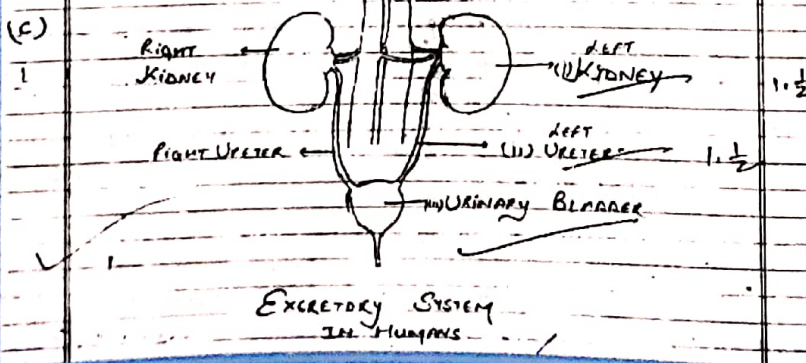 (c)
1
Right
Kidney
Left
(i) Kidney
1.½
Right Ureter
Left
(ii) Ureter
1.½
(iii) Urinary Bladder
1
Excretory System
In Humans